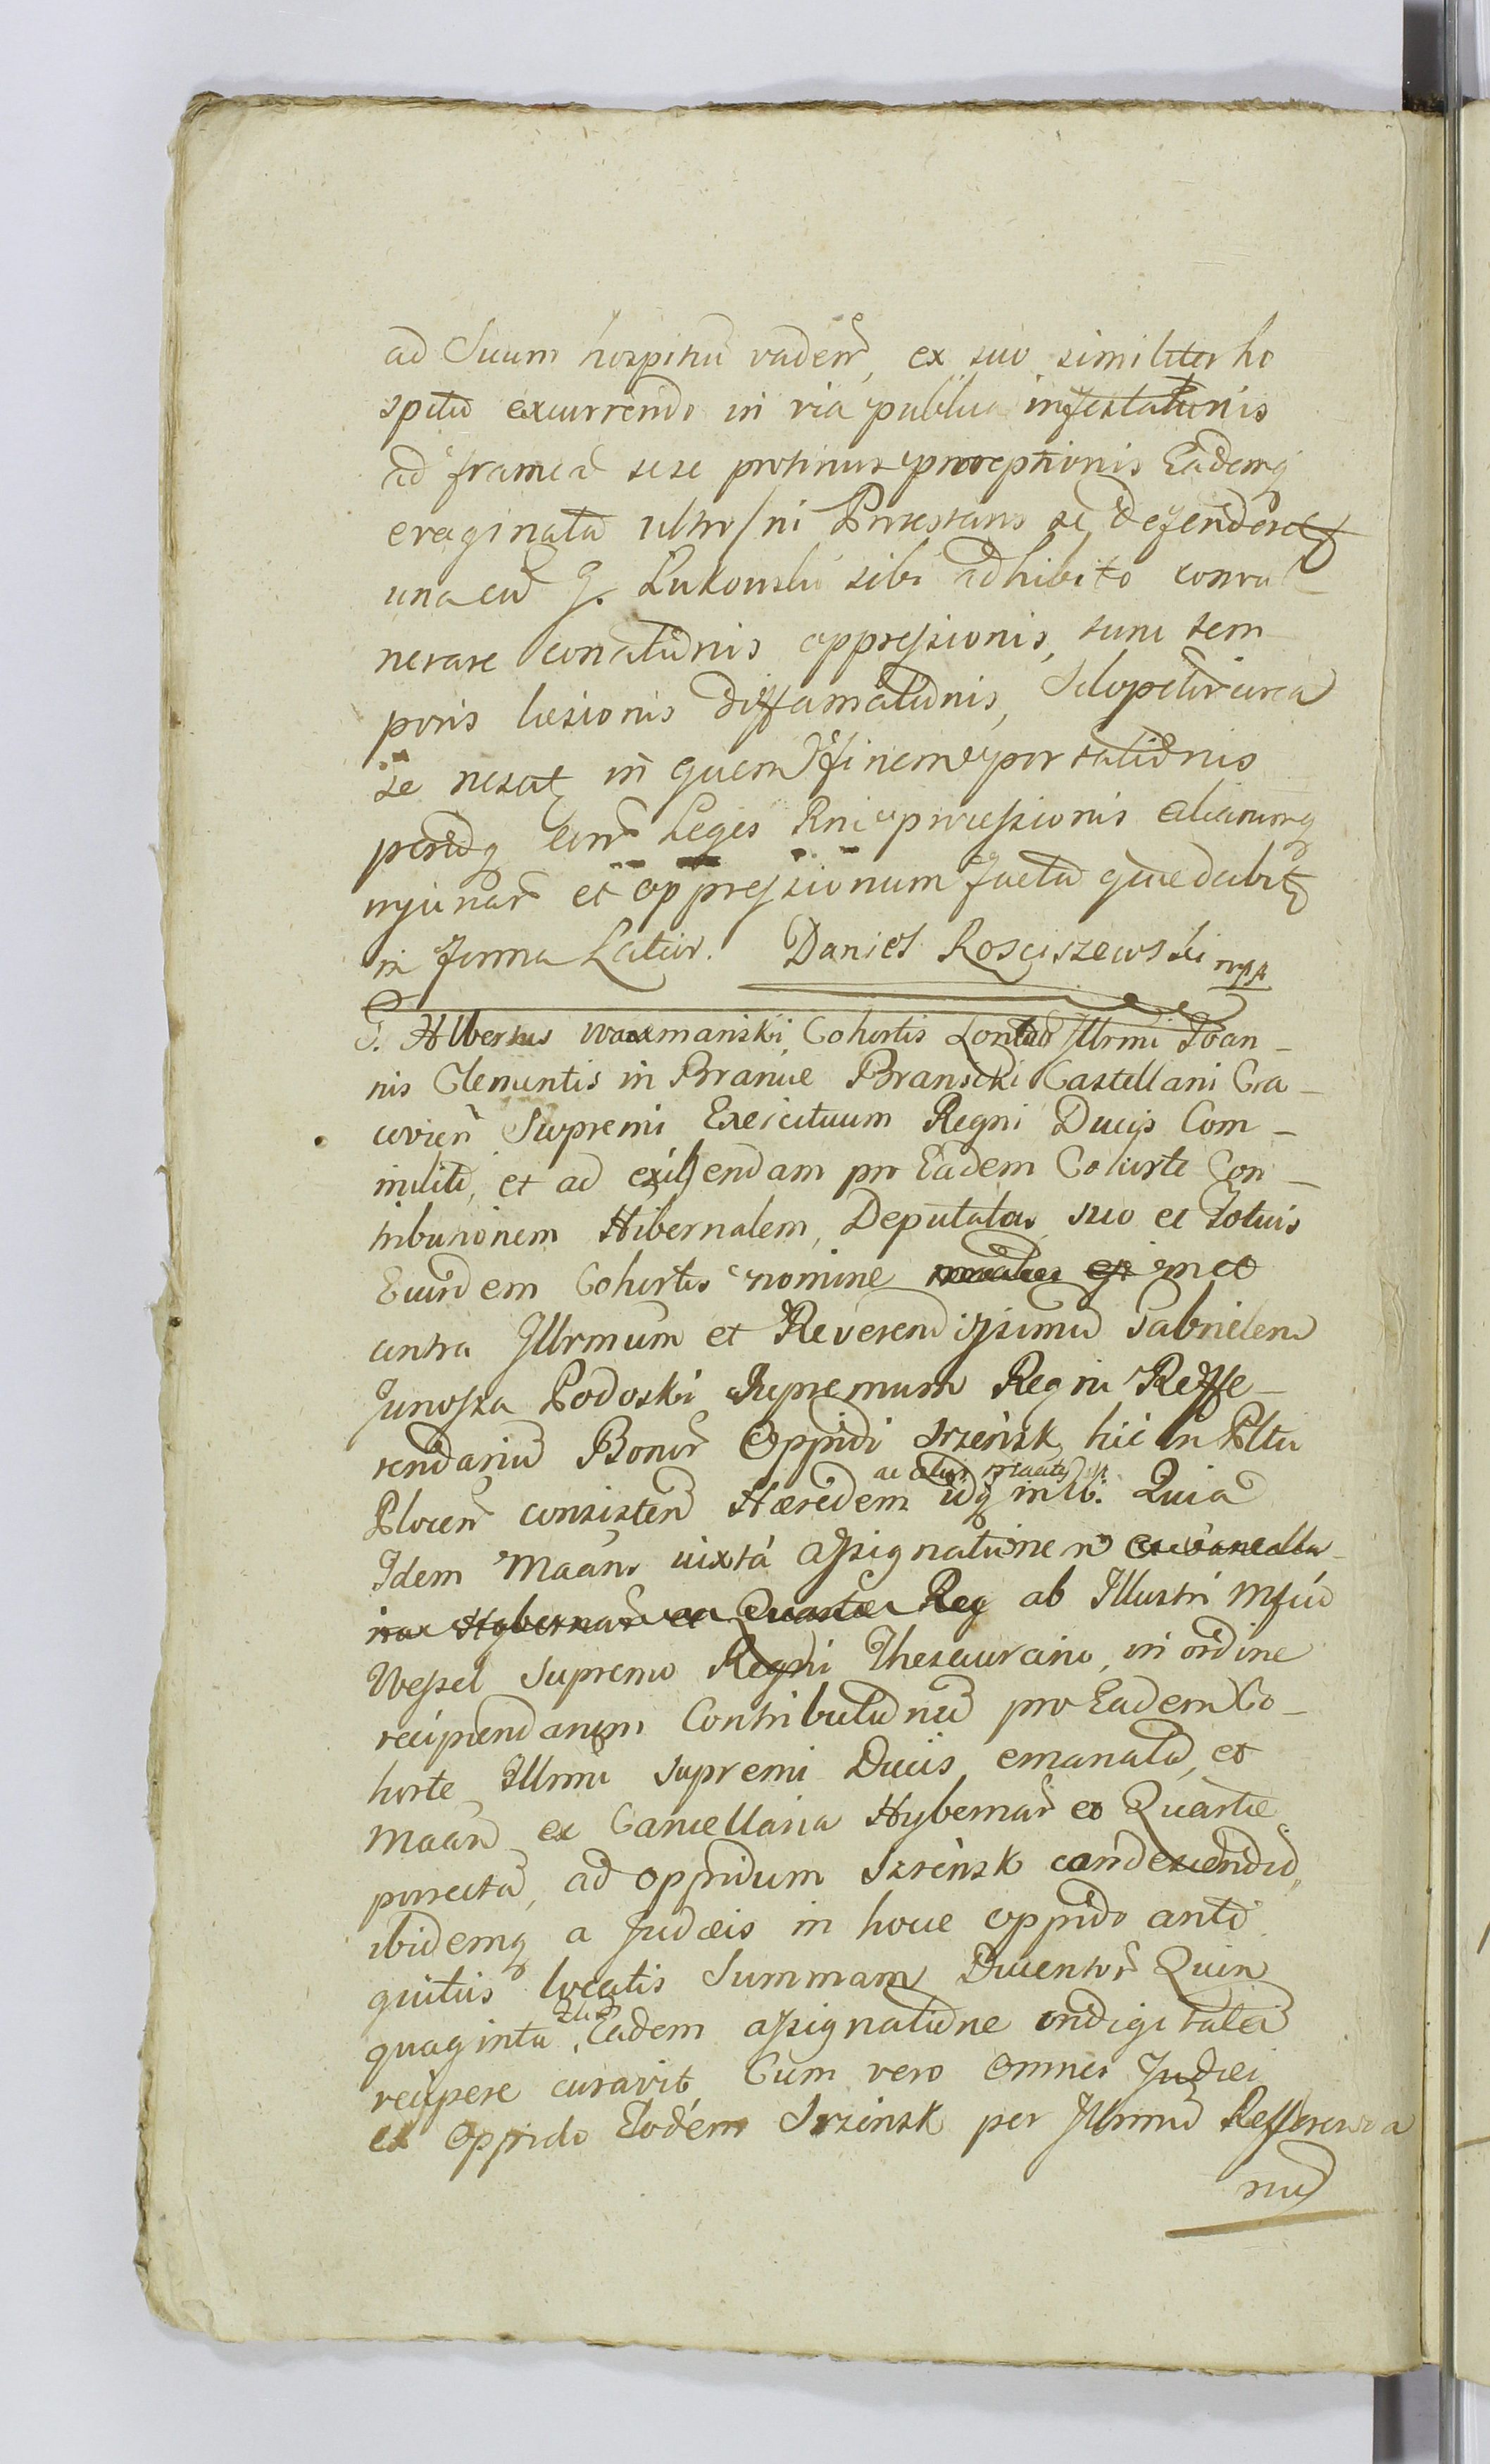 ad Suum hospitiu vaden, ex suo similiter ho
spitio excurrendo in via publica infestationis
ad frameã sese protinus proreptionis Eademq
evaginata ultro/ni Protestans se defenderet/
una cũ G. Lukowski sibi adhibito convul
nerare conationis oppressionis, tum tem
poris læsionis diffamationis, Sclopetor circa
se in quem finem portationis
Leges Rni processionis aliarumq
injuriar et oppressionum factã quæ dabit
in forma Latior. Daniel Rosciszewski mpp
G. Albertus Waxmanski, Cohortis Illrmi Joan-
nis Clementis in Branice Branicki Castellani Cra-
covien Supremi Exercituum Regni Ducis Com-
milito, et ad exigendam pro Eadem Cohorte Con-
tributionem Hibernalem, Deputatus, suo et Totius
Eiusdem Cohortis nomine
contra Illrmum et Reverendissimũ Gabrielem
Junosza Podoski Supremum Regni Reffe-
rendariũ Bonor Oppidi Srzensk hic in Pltu
Plocen consisten Hæredem idq in
Idem Maans iuxta assignationem ex Cancella
riæ Hybernar et Quartæ Reg ab Illustri Mfico
Wessel Supremo Regni Thesaurario, in ordine
recipiendarum Contributionũ pro Eadem Co-
horte Illrmi Supremi Ducis emanatã, et
Maan ex Cancellaria Hybernar et Quartæ
porrectã, ad oppidum Srzensk condescendit
ibidemq a Judæis in hocce oppido anti
quitus locatis Summam Ducentor Quin
quaginta Eadem assignatione indigitatã
recipere curavit, Cum vero omnes Judæi
ex Oppido Eodem Srzensk per Illrmũ Refferenda
riũ